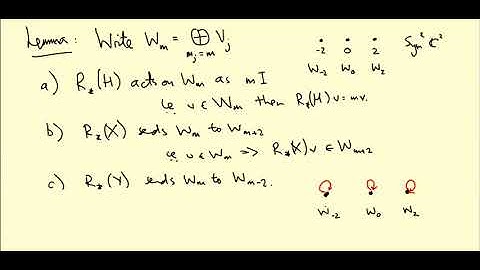 Lemma: Write W_m = ⊕_{m_j = m} V_j
-2 0 2 Sym² ℂ²
W_{-2} W_0 W_2
a) R_*(H) acts on W_m as m I
ie v ∈ W_m then R_*(H) v = m v.
b) R_*(X) sends W_m to W_{m+2}
ie v ∈ W_m ⇒ R_*(X) v ∈ W_{m+2}
c) R_*(Y) sends W_m to W_{m-2}.
W_{-2} W_0 W_2